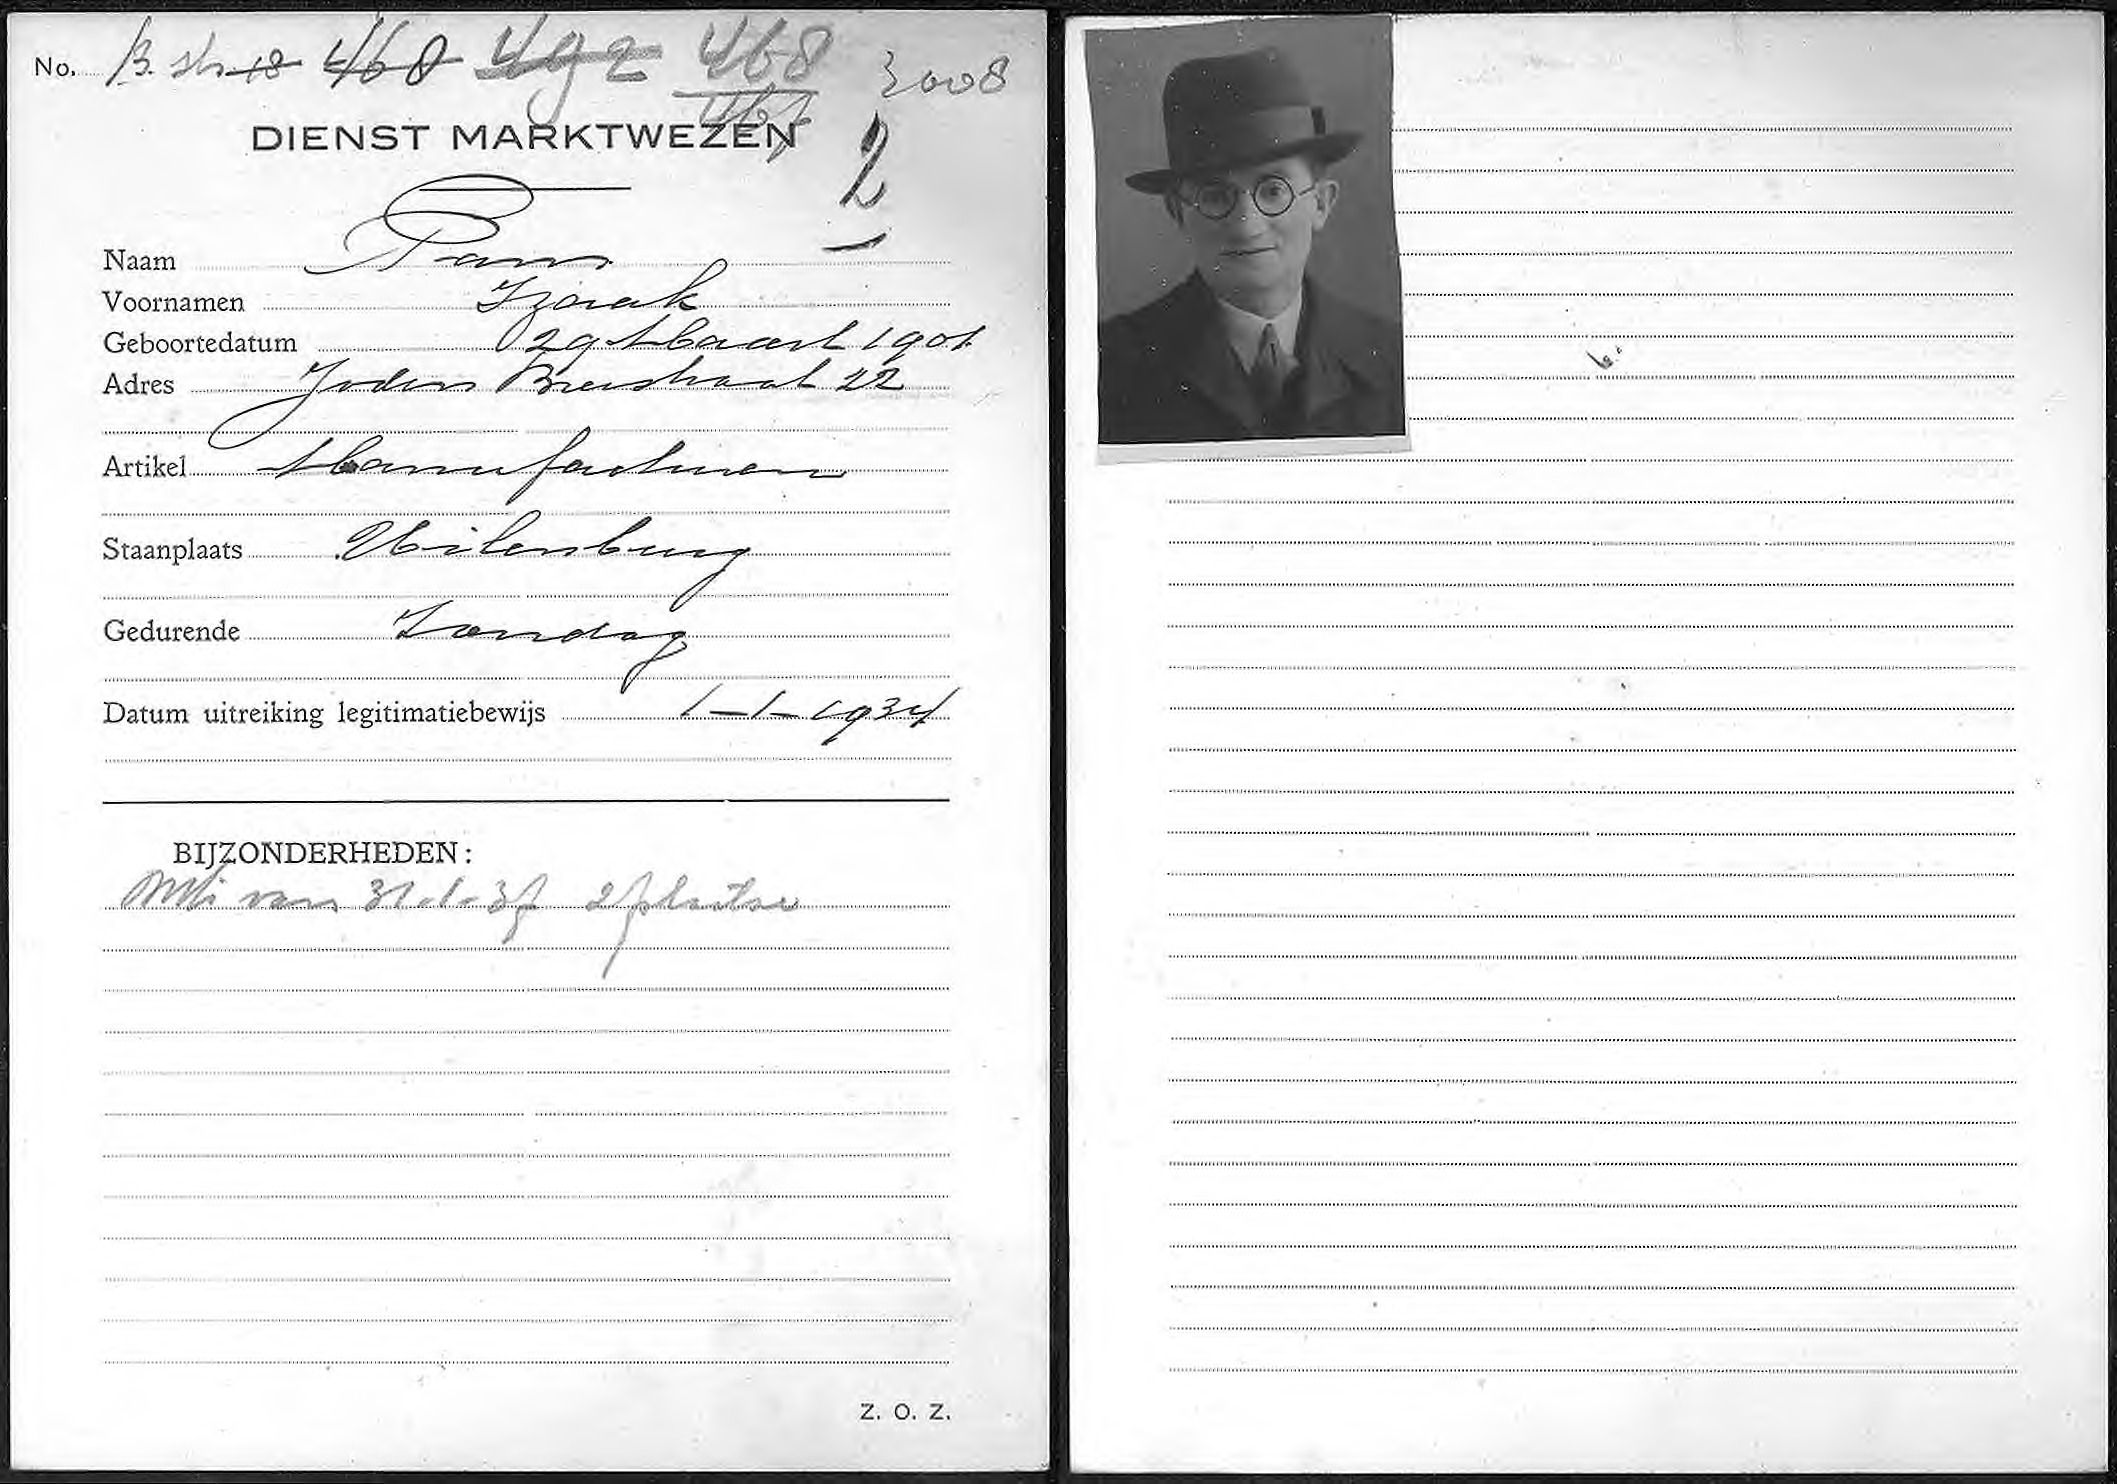 No. B. str 18 468 492 468 3008
467
DIENST MARKTWEZEN
2
Naam Prins
Voornamen Izaak
Geboortedatum 29 Maart 1901
Adres Joden Breestraat 22
Artikel Manufacturen
Staanplaats Uilenburg
Gedurende Zondag
Datum uitreiking legitimatiebewijs 1-1-1934
BIJZONDERHEDEN:
van 31-1-37 2 plaatsen
Z. O. Z.